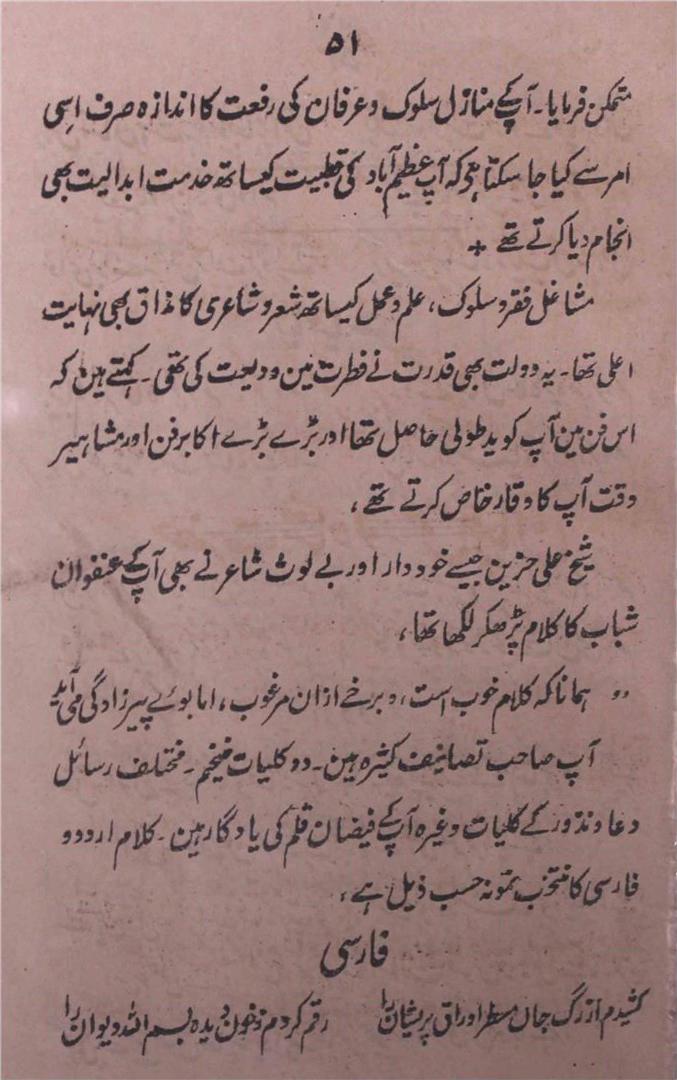 ۵۱
متمکن فرمایا۔ آپکے منازل سلوک و عرفان کی رفعت کا اندازہ صرف اِسی
امر سے کیا جا سکتا ہوکہ آپ عظیم آباد کی قطبیت کیساتھ خدمت ابدالیت بھی
انجام دیا کرتے تھے +
مشاغل فقر و سلوک، علم و عمل کیساتھ شعر و شاعری کا مذاق بھی نہایت
اعلی تھا۔ یہ دولت بھی قدرت نے فطرت مین ودیعت کی تھی۔ کہتے ہین کہ
اس فن مین آپ کو ید طولی حاصل تھا اور بڑے بڑے اکابر فن اور مشاہیر
وقت آپ کا وقار خاص کرتے تھے،
شیخ علی حزین جیسے خود دار اور بے لوث شاعر نے بھی آپکے عنفوان
شباب کا کلام پڑھکر لکھا تھا،
" ہمانا کہ کلام خوب است، و برخے ازان مرغوب، اما بوے پیرزادگی می آید
آپ صاحب تصانیف کثیرہ ہین۔ دو کلیات ضخیم۔ مختلف رسائل
دعا و نذور کے کلیات وغیرہ آپکے فیضان قلم کی یادگار ہین۔ کلام اردو و
فارسی کا منتخب نمونہ حسب ذیل ہے،
فارسی
کشیدم از رگ جان مسطر اوراق پریشان را رقم کردم ز خون دیدہ بسم اللہ دیوان را